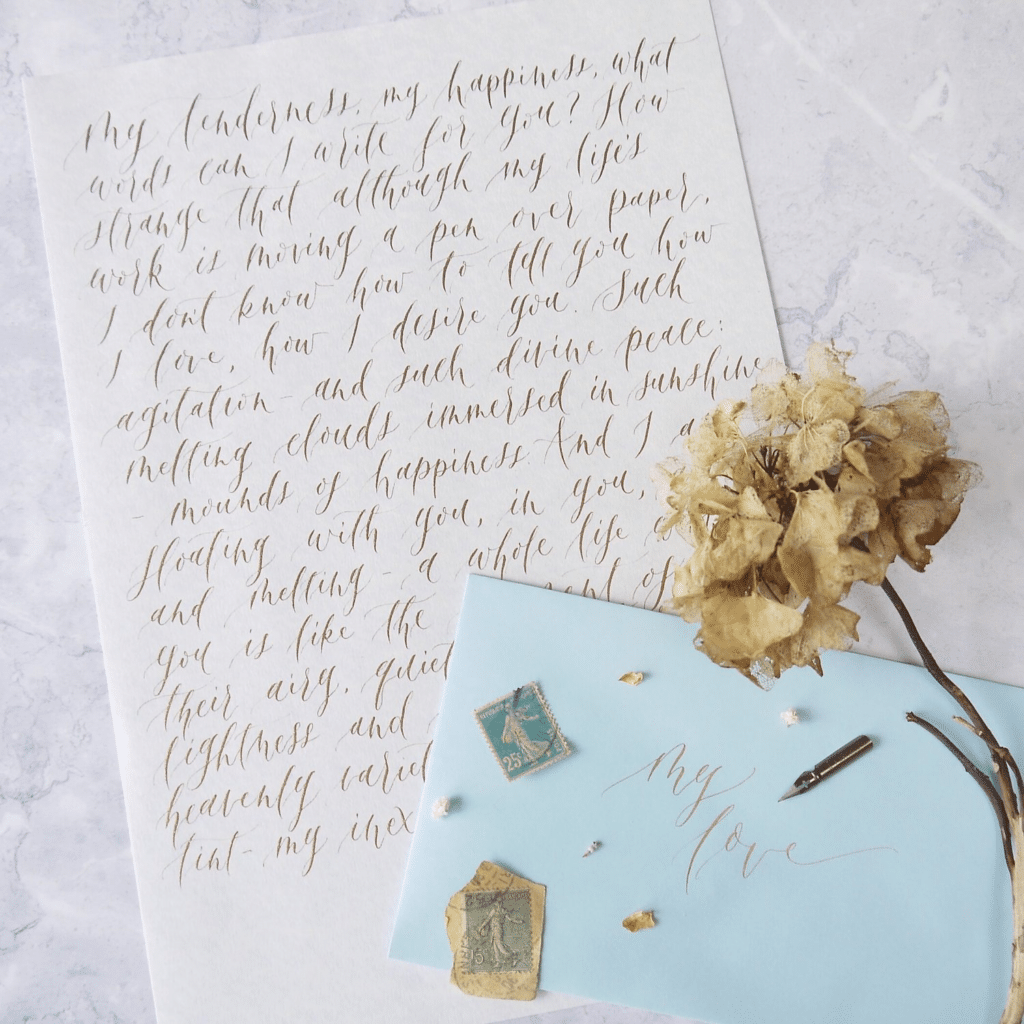 My tenderness, my happiness, what
words can I write for you? How
strange that although my life's
work is moving a pen over paper,
I don't know how to tell you how
I love, how I desire you. Such
agitation - and such divine peace:
melting clouds immersed in sunshine
- mounds of happiness. And I a
floating with you, in you,
and melting - a whole life
you is like the ment of
their airy, quiet
lightness and
heavenly variet
tint - my inex
25c
my
love
15c